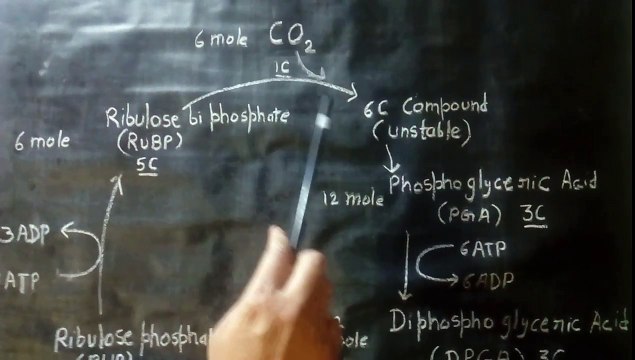 6 mole CO2
1C
Ribulose bi phosphate
(RUBP)
5C
6 mole
6C Compound
(unstable)
12 mole
Phosphoglyceric Acid
(PGA) 3C
3ADP
ATP
6ATP
6ADP
Diphosphoglyceric Acid
(DPGA) 3C
Ribulose phospha